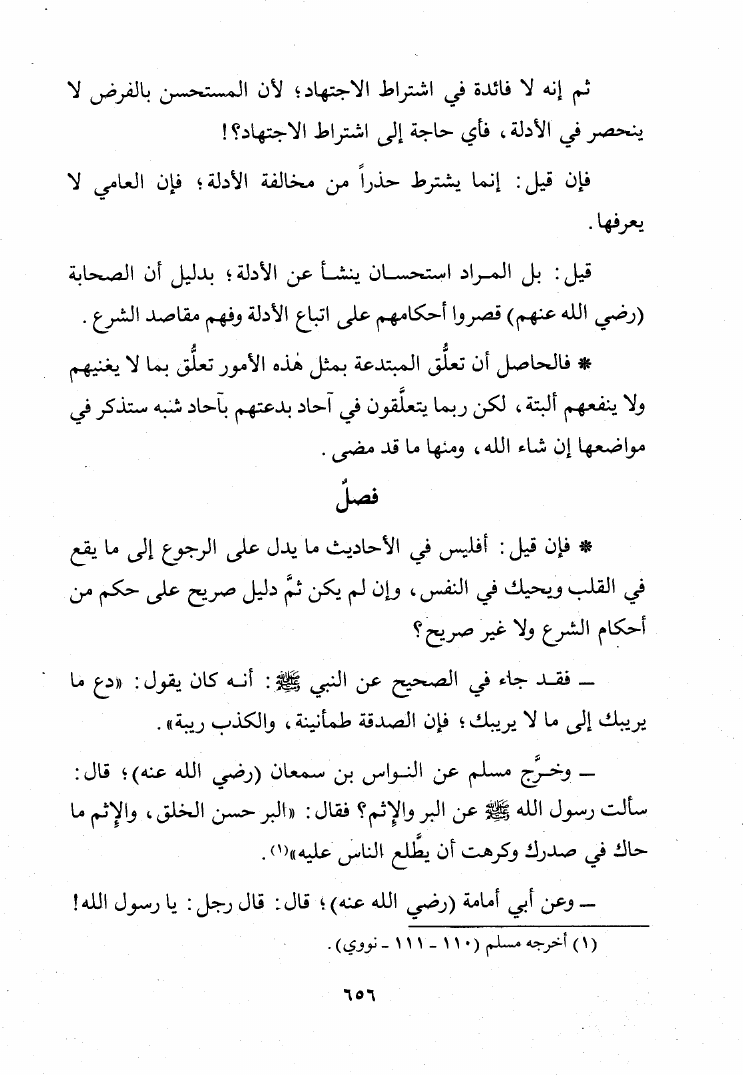 ثم إنه لا فائدة في اشتراط الاجتهاد؛ لأن المستحسن بالفرض لا
ينحصر في الأدلة، فأي حاجة إلى اشتراط الاجتهاد؟!
فإن قيل: إنما يشترط حذراً من مخالفة الأدلة؛ فإن العامي لا
يعرفها.
قيل: بل المراد استحسان ينشأ عن الأدلة؛ بدليل أن الصحابة
(رضي الله عنهم) قصروا أحكامهم على اتباع الأدلة وفهم مقاصد الشرع.
* فالحاصل أن تعلُّق المبتدعة بمثل هٰذه الأمور تعلُّق بما لا يغنيهم
ولا ينفعهم ألبتة، لكن ربما يتعلَّقون في آحاد بدعتهم بآحاد شبه ستذكر في
مواضعها إن شاء الله، ومنها ما قد مضى.
فصلٌ
* فإن قيل: أفليس في الأحاديث ما يدل على الرجوع إلى ما يقع
في القلب ويحيك في النفس، وإن لم يكن ثمَّ دليل صريح على حكم من
أحكام الشرع ولا غير صريح؟
ـ فقد جاء في الصحيح عن النبي ﷺ: أنه كان يقول: «دع ما
يريبك إلى ما لا يريبك؛ فإن الصدقة طمأنينة، والكذب ريبة».
ـ وخرَّج مسلم عن النواس بن سمعان (رضي الله عنه)؛ قال:
سألت رسول الله ﷺ عن البر والإثم؟ فقال: «البر حسن الخلق، والإثم ما
حاك في صدرك وكرهت أن يطَّلع الناس عليه»(١).
ـ وعن أبي أمامة (رضي الله عنه)؛ قال: قال رجل: يا رسول الله!
(١) أخرجه مسلم (١١٠ - ١١١ - نووي).
٦٥٦